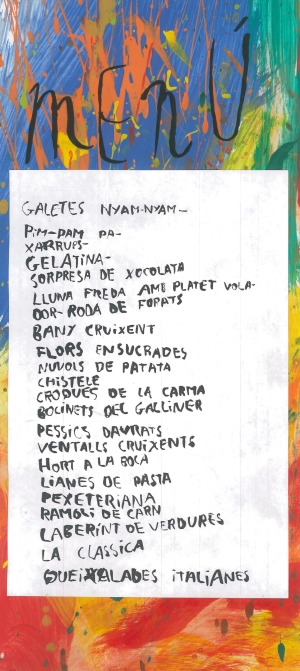 MENÚ
GALETES NYAM-NYAM-
PIM-PAM PA-
XARRUPS-
GELATINA-
SORPRESA DE XOCOLATA
LLUNA FREDA AMB PLATET VOLA-
DOR-RODA DE FORATS
BANY CRUIXENT
FLORS ENSUCRADES
NUVOLS DE PATATA
CHISTELE
CROQUES DE LA CARMA
BOCINETS DEL GALLINER
PESSICS DAURATS
VENTALLS CRUIXENTS
HORT A LA BOCA
LIANES DE PASTA
PEXETERIANA
RAMBLI DE CARN
LABERINT DE VERDURES
LA CLASSICA
QUEIXALADES ITALIANES